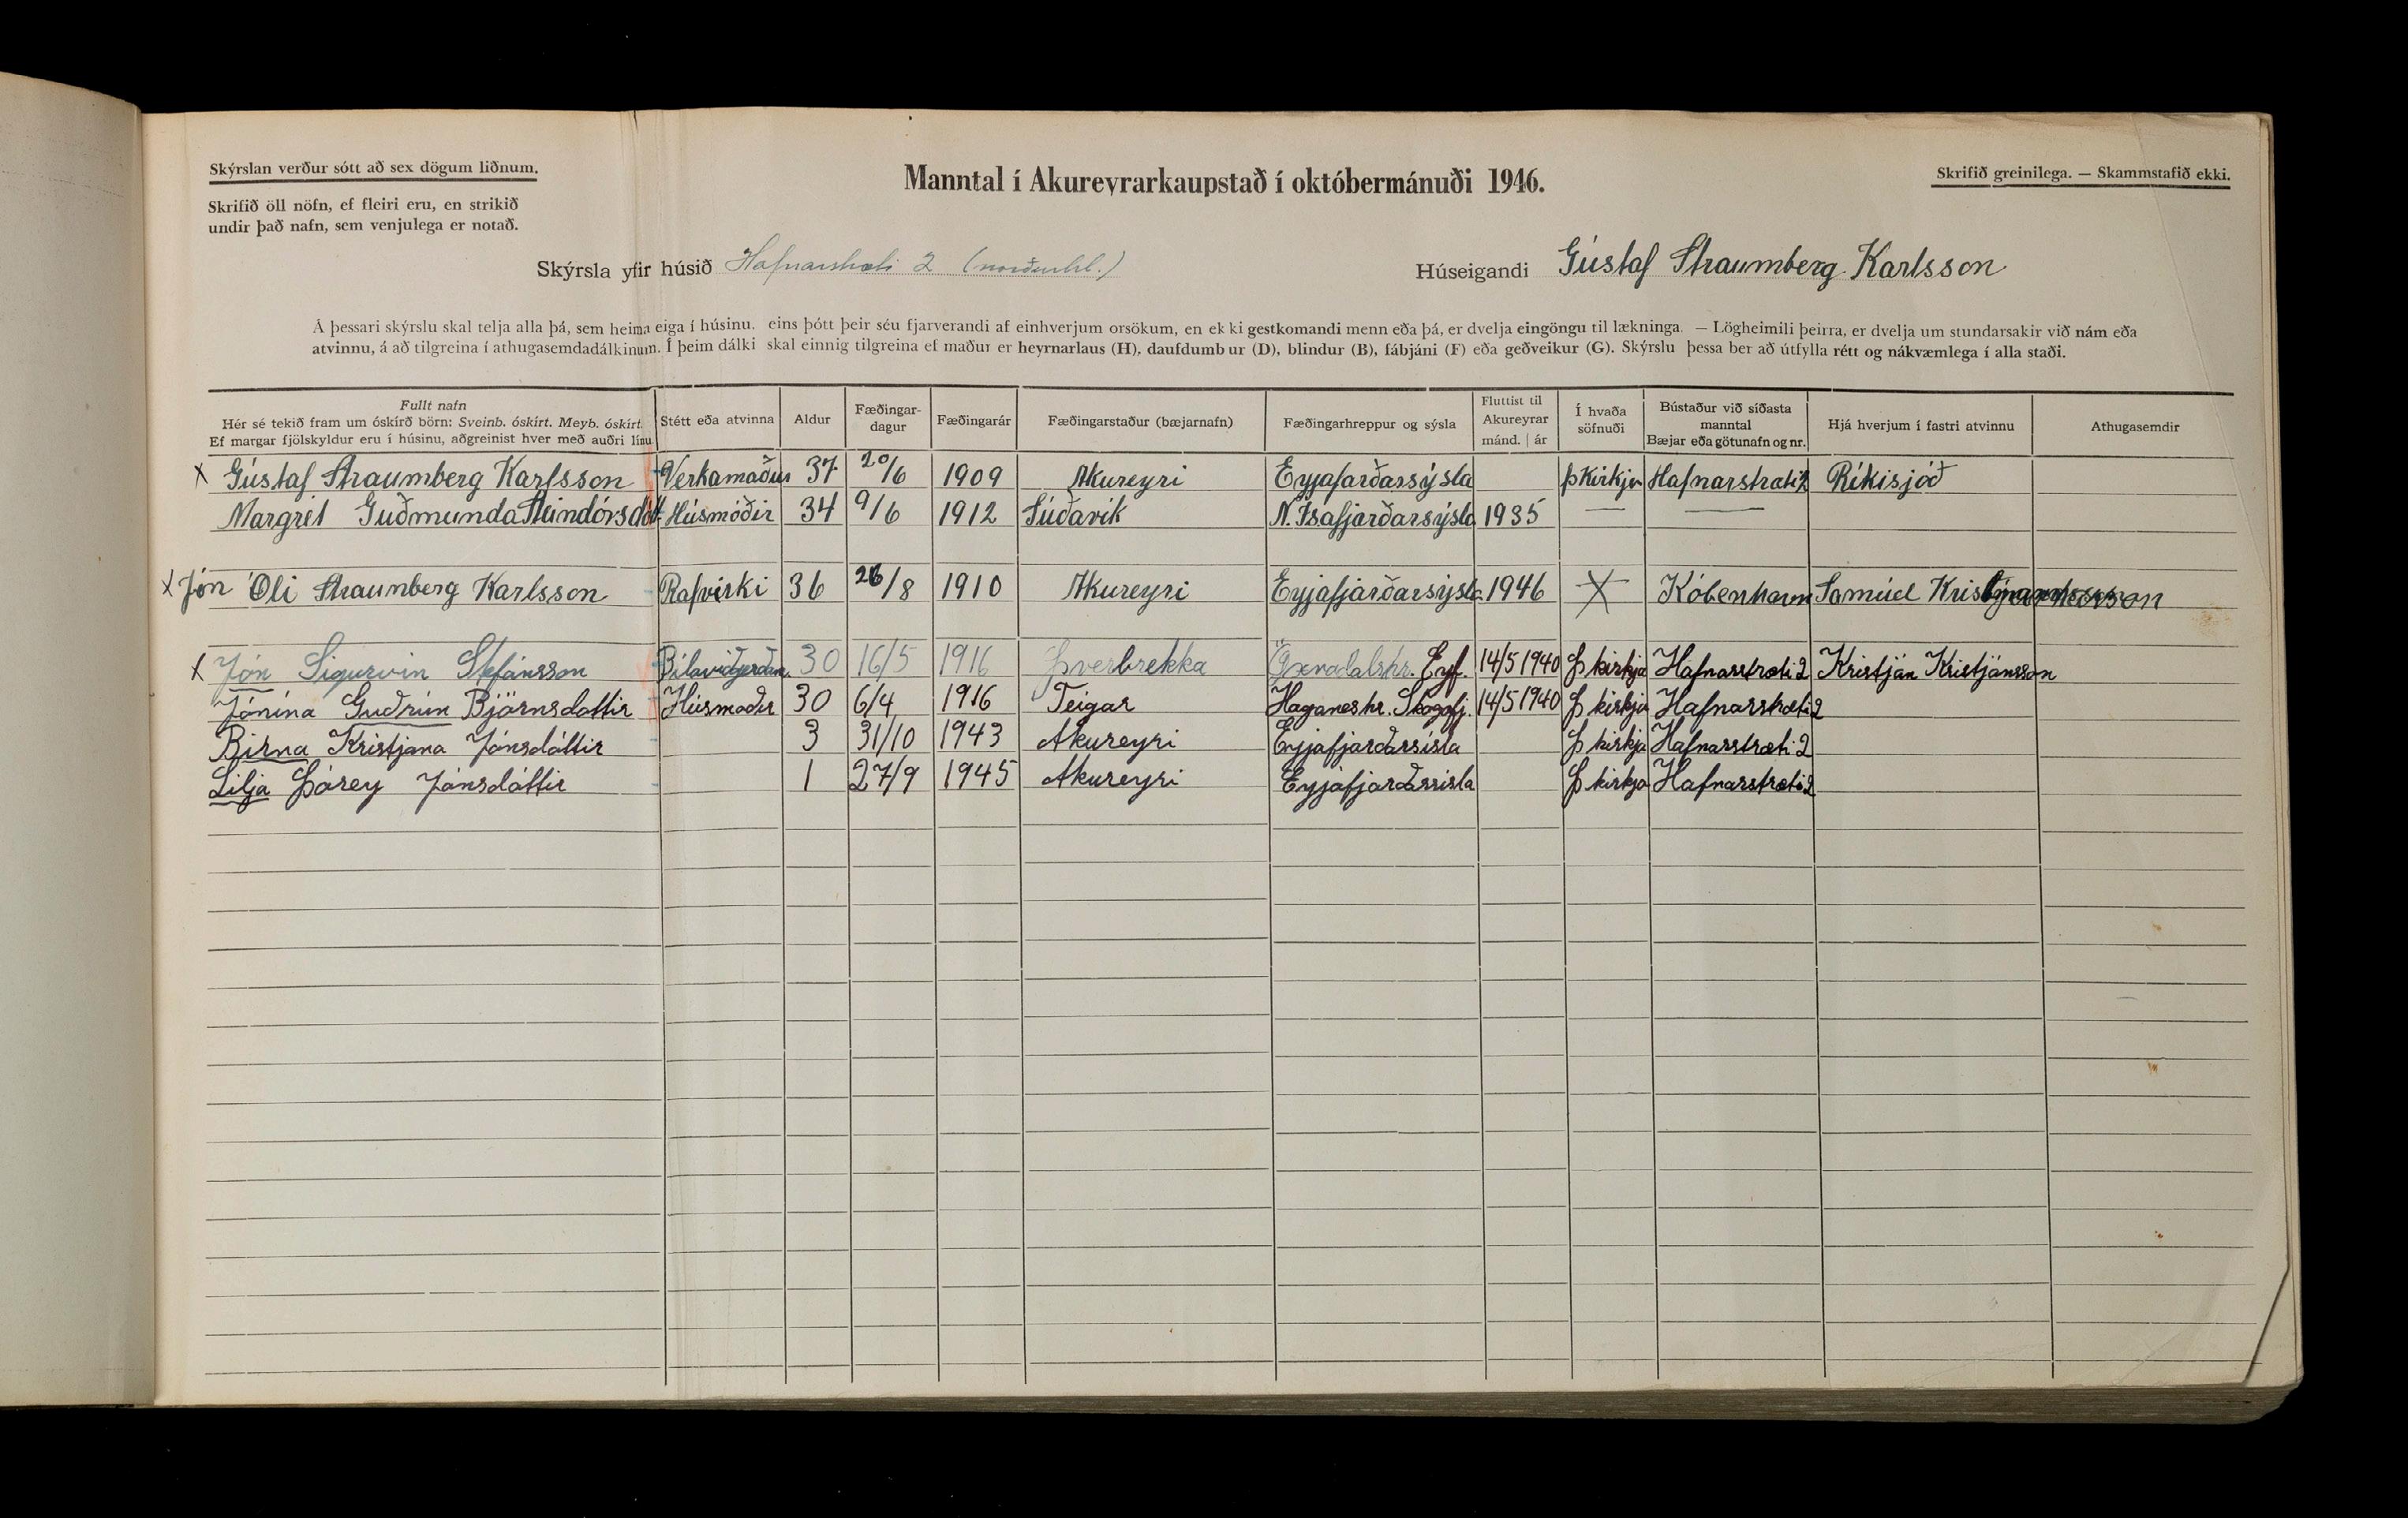 Skýrslan verður sótt að sex dögum liðnum.
Manntal í Akureyrarkaupstað í októbermánuði 1946.
Skrifið greinilega. — Skammstafið ekki.
Skrifið öll nöfn, ef fleiri eru, en strikið
undir það nafn, sem venjulega er notað.
Skýrsla yfir húsið Hafnarstræti 2 (norðurhl.) Húseigandi Gústaf Straumberg Karlsson
Á þessari skýrslu skal telja alla þá, sem heima eiga í húsinu, eins þótt þeir séu fjarverandi af einhverjum orsökum, en ekki gestkomandi menn eða þá, er dvelja eingöngu til lækninga. — Lögheimili þeirra, er dvelja um stundarsakir við nám eða
atvinnu, á að tilgreina í athugasemdadálkinum. Í þeim dálki skal einnig tilgreina ef maður er heyrnarlaus (H), daufdumbur (D), blindur (B), fábjáni (F) eða geðveikur (G). Skýrslu þessa ber að útfylla rétt og nákvæmlega í alla staði.
Fullt nafn
Hér sé tekið fram um óskírð börn: Sveinb. óskírt. Meyb. óskírt.
Ef margar fjölskyldur eru í húsinu, aðgreinist hver með auðri línu
Stétt eða atvinna
Aldur
Fæðingar-
dagur
Fæðingarár
Fæðingarstaður (bæjarnafn)
Fæðingarhreppur og sýsla
Fluttist til
Akureyrar
mánd. | ár
Í hvaða
söfnuði
Bústaður við síðasta
manntal
Bæjar eða götunafn og nr.
Hjá hverjum í fastri atvinnu
Athugasemdir
X Gústaf Straumberg Karlsson Verkamaður 37 20/6 1909 Akureyri Eyjafarðarsýsla þkirkju Hafnarstræti 2 Ríkisjóð
Margrét Guðmunda Steindórsdótt. Húsmóðir 34 9/6 1912 Súðavík N. Ísafjarðarsýsla 1935 — —
X Jón Óli Straumberg Karlsson Rafvirki 36 26/8 1910 Akureyri Eyjafjarðarsýsla 1946 X Köbenhavn Samúel Kristjánsson
X Jón Sigurvin Stefánsson Bílaviðgerðam. 30 16/5 1916 Þverbrekka Öxnadalshr. Eyf. 14/5 1940 Þ kirkja Hafnarstræti 2 Kristján Kristjánsson
Jónína Guðrún Björnsdóttir Húsmóðir 30 6/4 1916 Teigar Haganeshr. Skagafj. 14/5 1940 Þ kirkja Hafnarstræti 2
Birna Kristjana Jónsdóttir 3 31/10 1943 Akureyri Eyjafjarðarsísla Þ kirkja Hafnarstræti 2
Lilja Þórey Jónsdóttir 1 27/9 1945 Akureyri Eyjafjarðarsísla Þ kirkja Hafnarstræti 2